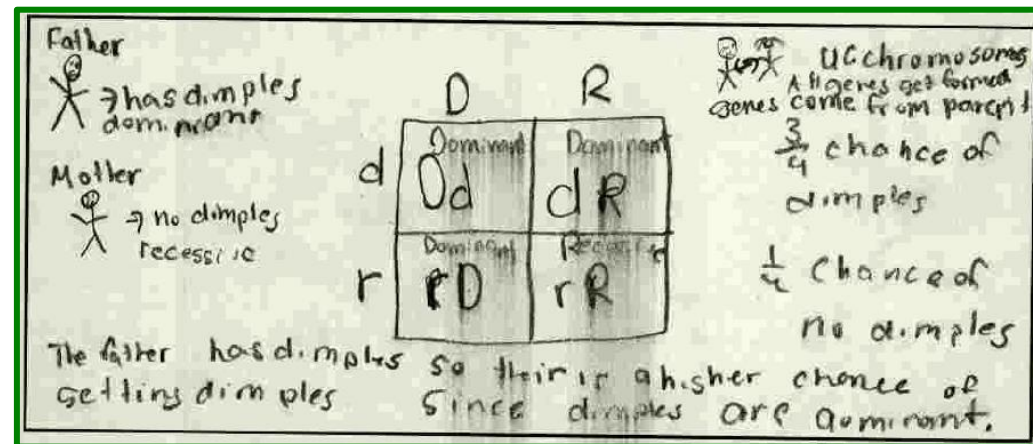 Father
→ has dimples
dominant
Mother
→ no dimples
recessive
D R
d
r
Dominant
Dd
Dominant
dR
Dominant
rD
Recessive
rR
chromosomes
All genes get formed
genes come from parent
3/4 chance of
dimples
1/4 chance of
no dimples
The father has dimples so their is a higher chance of
getting dimples since dimples are dominant.